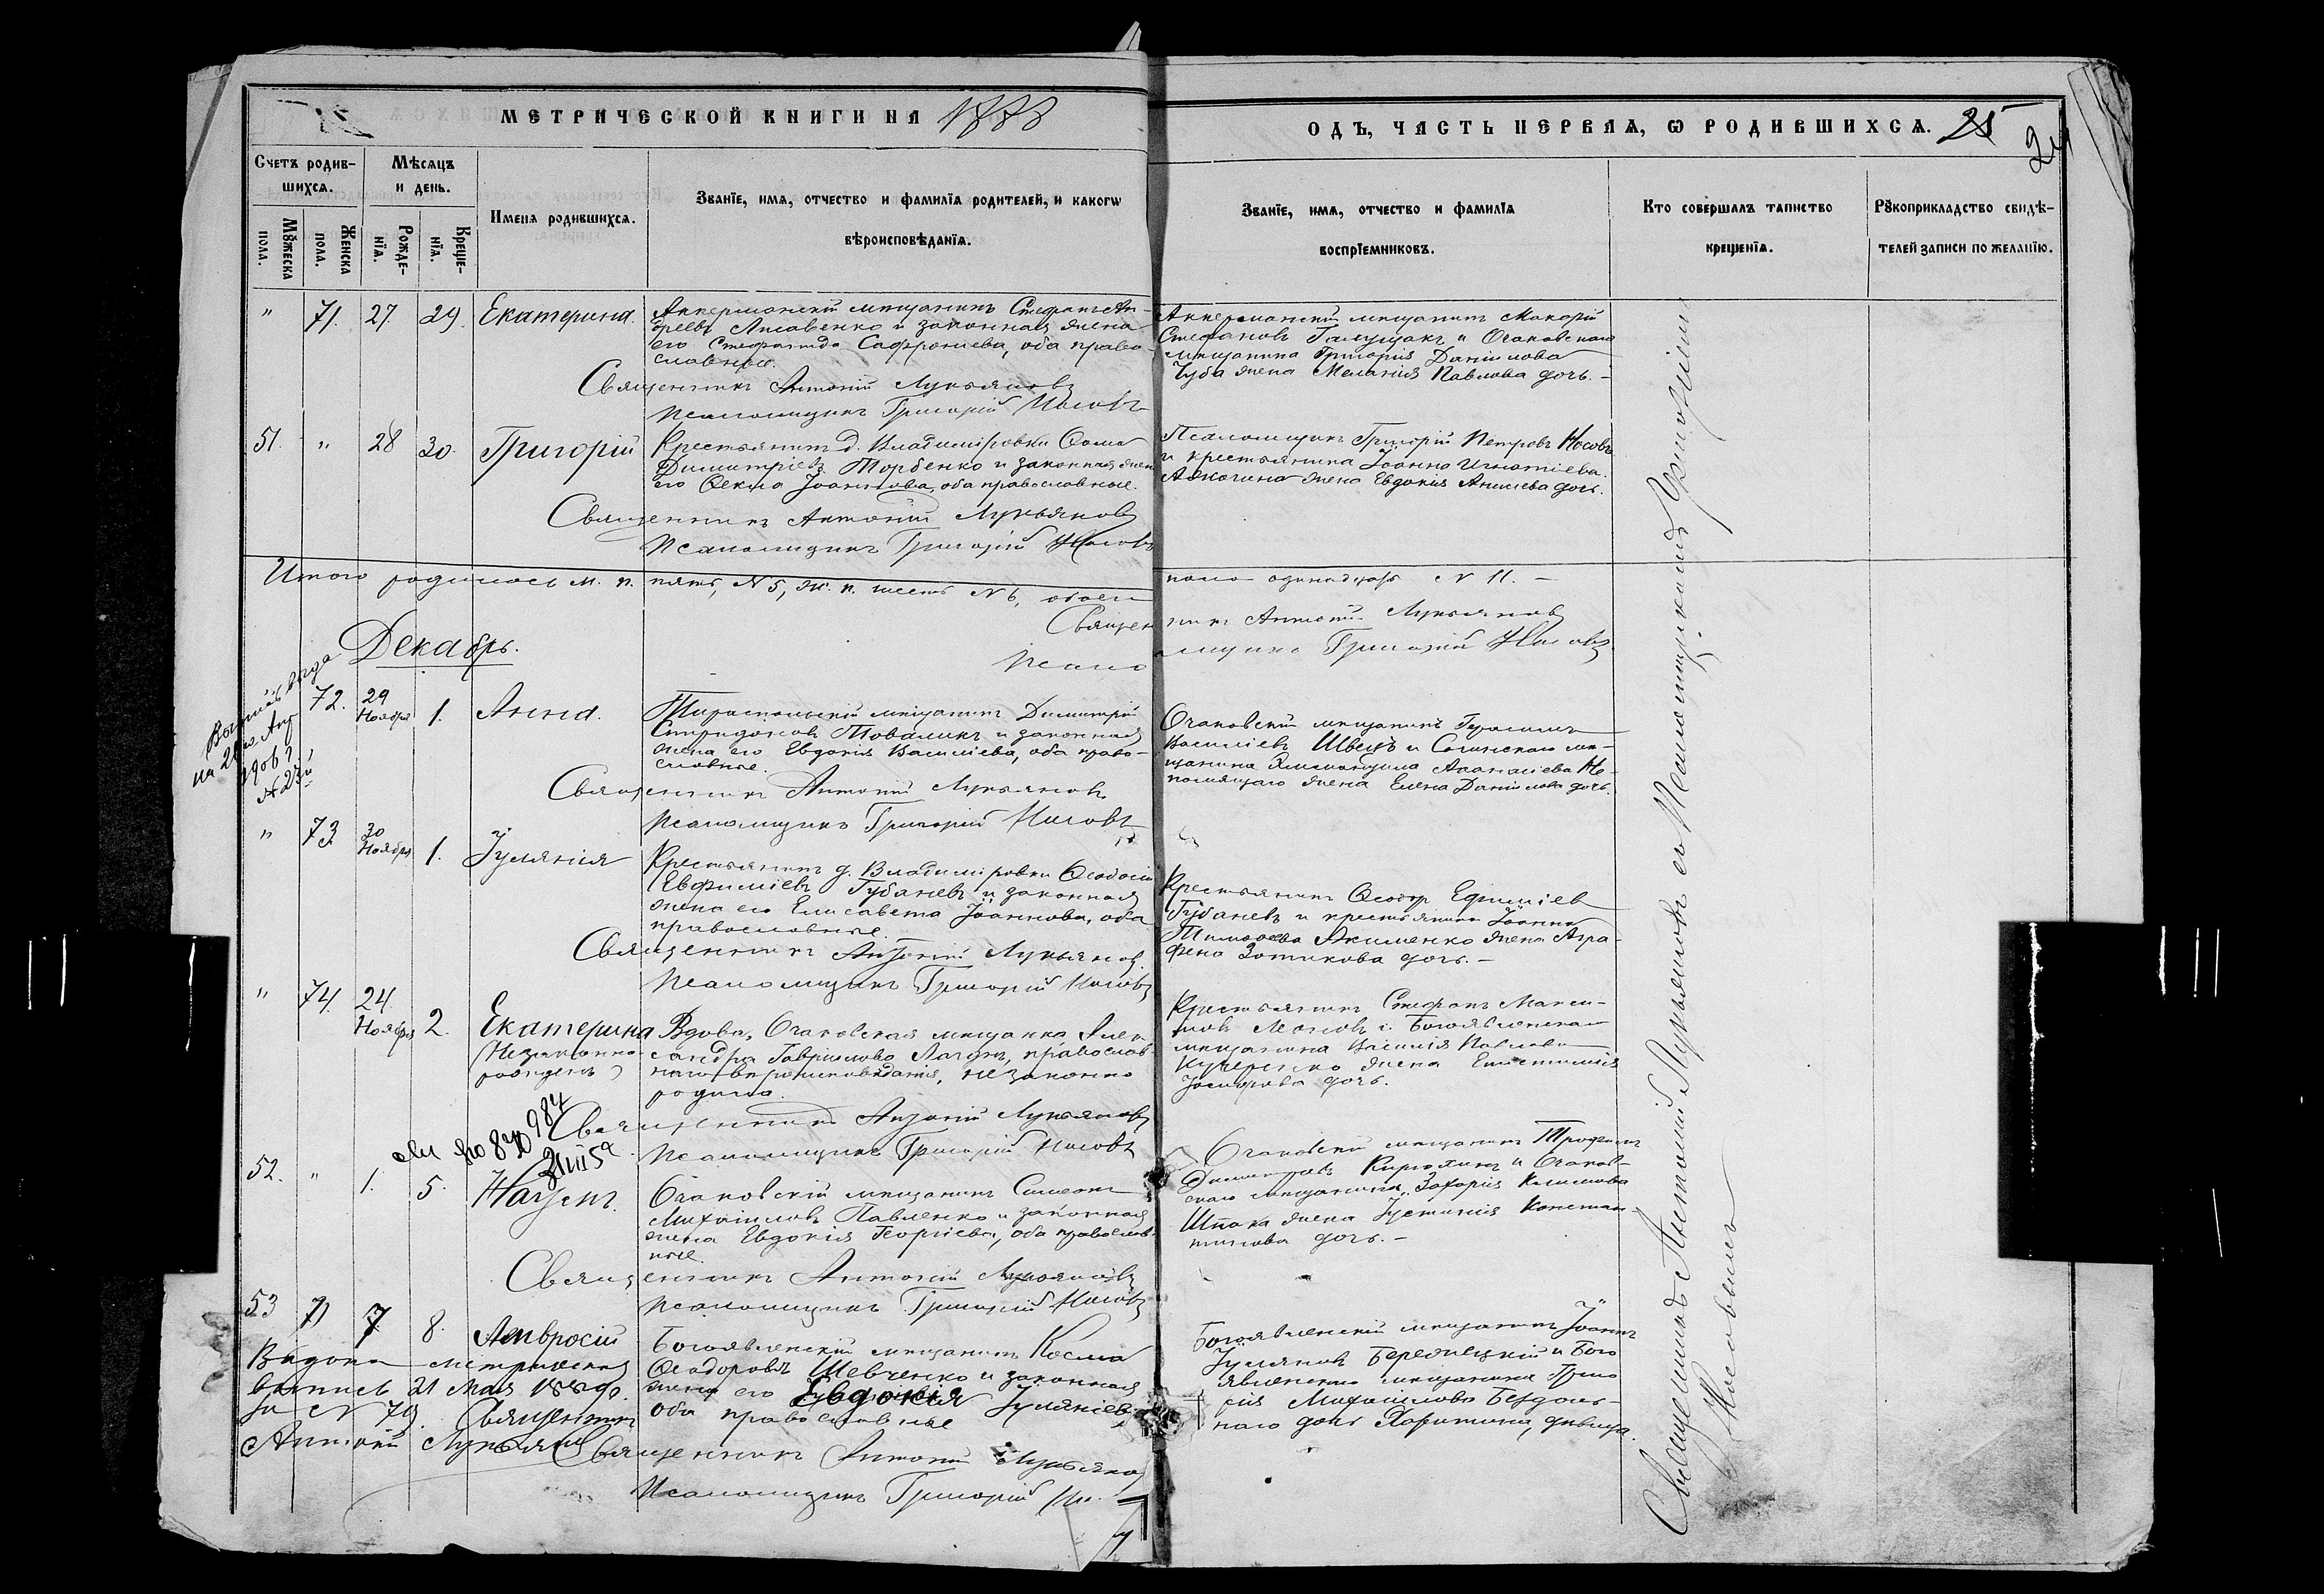 МЕТРИЧЕСКОЙ КНИГИ НА 1888
ОДЪ, ЧАСТЬ ПЕРВАЯ, Ѡ РОДИВШИХСЯ. 25
24
Счетъ родив-
шихся.
Мѣсяцъ
и день.
Имена родившихся.
Званїе, имя, отчество и фамилїя родителей, и какогѡ
вѣроисповѣданїя.
Мꙋжеска
пола.
Женска
пола.
Рожде-
нїя.
Креще-
нїя.
Званїе, имя, отчество и фамилїя
воспрїемниковъ.
Кто совершалъ таинство
крещенїя.
Рꙋкоприкладство свидѣ-
телей записи по желанїю.
" 71. 27. 29. Екатерина.
Аккерманскій мѣщанинъ Стефанъ Ан-
дреевъ Лисавенко и законная жена
его Стефанида Сафроніева, оба право-
славные.
Священникъ Антоній Лукьяновъ
Псаломщикъ Григорій Носовъ
Аккерманскій мѣщанинъ Макарій
Стефановъ Галущакъ и Очаковскаго
мѣщанина Григорія Даніилова
Чуба жена Меланія Павлова дочь. -
51. " 28 30. Григорій
Крестьянинъ д. Владиміровки Ѳома
Димитріевъ Торбенко и законная жена
его Ѳекла Іоаннова, оба православные.
Священникъ Антоній Лукьяновъ
Псаломщикъ Григорій Носовъ
Псаломщикъ Григорій Петровъ Носовъ
и крестьянина Іоанна Игнатіева
жена Евдокія дочь.
Итого родилось м. п. пять, N 5, ж. п. шесть N 6, обоего
пола одинадцать N 11. -
Священникъ Антоній Лукьяновъ
Псаломщикъ Григорій Носовъ
Декабрь.
72. 29 Ноября 1. Анна.
Тираспольскій мѣщанинъ Димитрій
Спиридоновъ Товалика и законная
жена его Евдокія Василіева, оба право-
славные.
Священникъ Антоній Лукьяновъ
Псаломщикъ Григорій Носовъ
Очаковскій мѣщанинъ Герасимъ
Василіевъ Швецъ и мѣ-
щанина Аѳанасіева Не-
помящаго жена Елена Даніилова дочь.
" 73. 30 Ноября 1. Іуліанія
Крестьянинъ д. Владиміровки Ѳеодосій
Евфиміевъ Губаневъ и законная
жена его Елисавета Іоаннова, оба
православные.
Священникъ Антоній Лукьяновъ
Псаломщикъ Григорій Носовъ
Крестьянинъ Ѳеодоръ Ефиміевъ
Губаневъ и крестьянина Іоанна
Тимоѳеева Якименко жена Агра-
фена Зотикова дочь. -
" 74. 24 Ноября 2. Екатерина
(Незаконно-
рожден)
Вдова, Очаковская мѣщанка Алек-
сандра Гавріилова православ-
наго вѣроисповѣданія, незаконно
родила.
Священникъ Антоній Лукьяновъ
Псаломщикъ Григорій Носовъ
Крестьянинъ Стефанъ Макси-
мовъ и Богоявленскаго
мѣщанина Василія Павлова
Кучеренко жена Епистимія
дочь.
52. " 1. 5. Наумъ.
Очаковскій мѣщанинъ Симеонъ
Михаиловъ Павленко и законная
жена Евдокія Георгіева, оба православ-
ные.
Священникъ Антоній Лукьяновъ
Псаломщикъ Григорій Носовъ
Очаковскій мѣщанинъ Трофимъ
Димитріевъ Кирюхинъ и Очаков-
скаго мѣщанина Захарія Климова
Шпака жена Іустинія Констан-
тинова дочь. -
53 7 8. Амвросій
Богоявленскій мѣщанинъ Косма
Ѳеодоровъ Шевченко и законная
жена его Евдокія Іуліаніева
оба православные
Священникъ Антоній Лукьянов
Псаломщикъ Григорій
Богоявленскій мѣщанинъ Іоаннъ
Іуліановъ Бередецкій и Бого
явленскаго мѣщанина Григо
рія Михаилова
дочь Харитина, дѣвица.
Выдана метрическая
выпись 21 Мая 1889 г.
за N 79. Священникъ
Антоній Лукьянов
Священникъ Антоній Лукьяновъ съ Псаломщикомъ Григоріемъ
Носовымъ